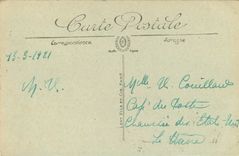 Carte Postale
Correspondance
Adresse
13-3-1921
M.V.
Mlle V. Couillard
Cap. du Poste
Chaussée des Etats-Unis
Le Havre